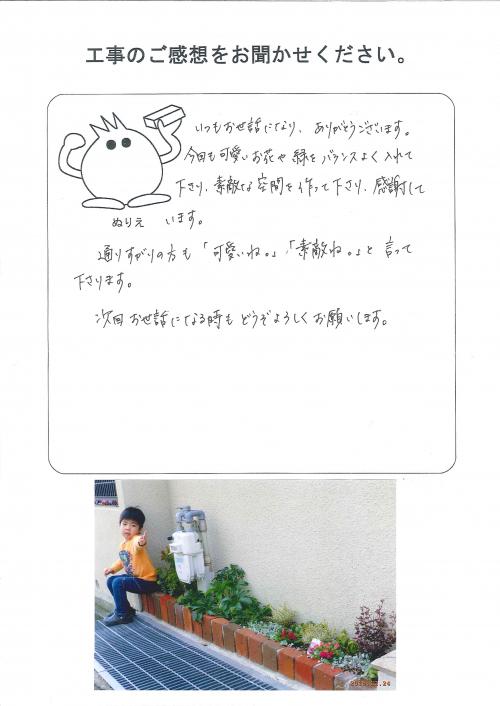 工事のご感想をお聞かせください。
いつもお世話になり、ありがとうございます。
今回も可愛いお花や緑をバランスよく入れて
下さり、素敵な空間を作って下さり、感謝して
います。
ぬりえ
通りすがりの方も「可愛いね。」「素敵ね。」と言って
下さります。
次回お世話になる時もどうぞよろしくお願いします。